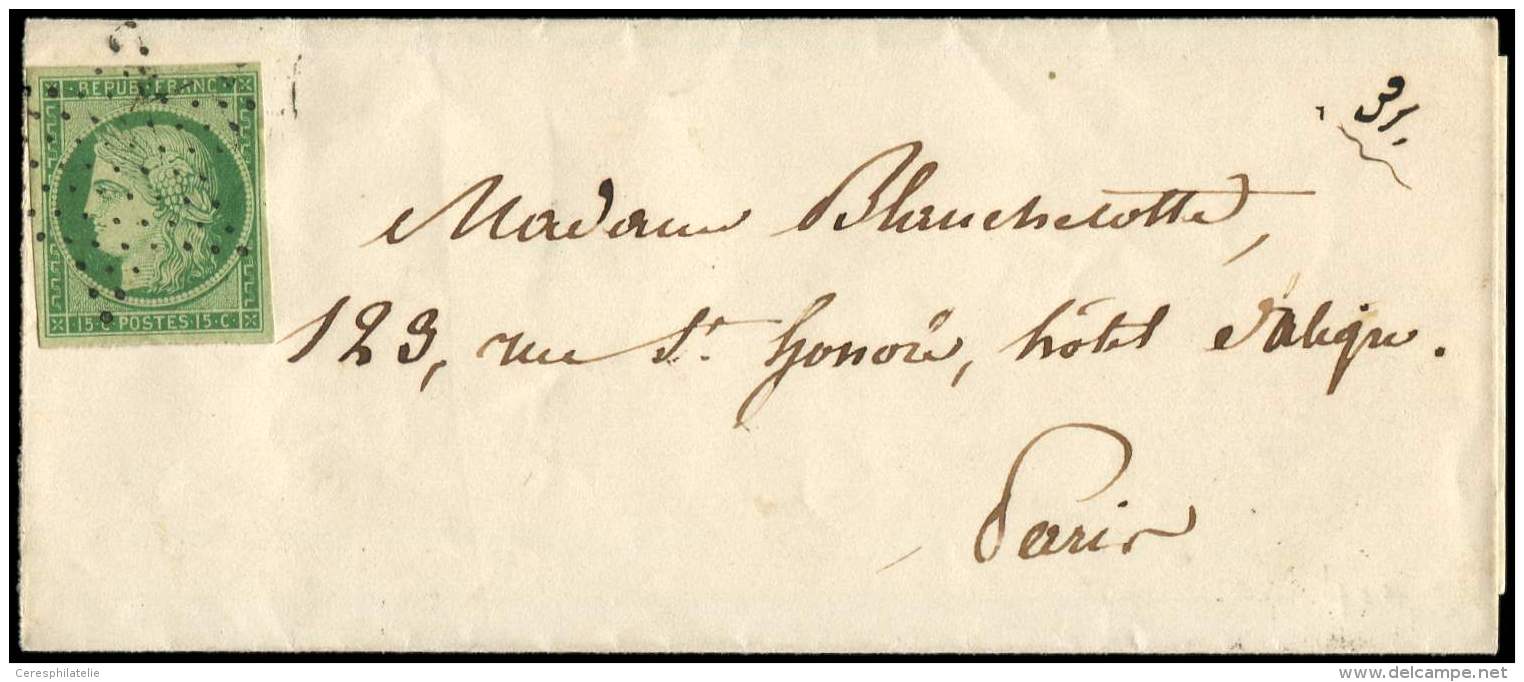 REPUB·FRANC·
15·C·POSTES·15·C·
31.
Madame Blanchecotte,
123, rue St. honoré, hôtel d'aligre.
Paris
Ceresphilatelie
www.delcampe.net